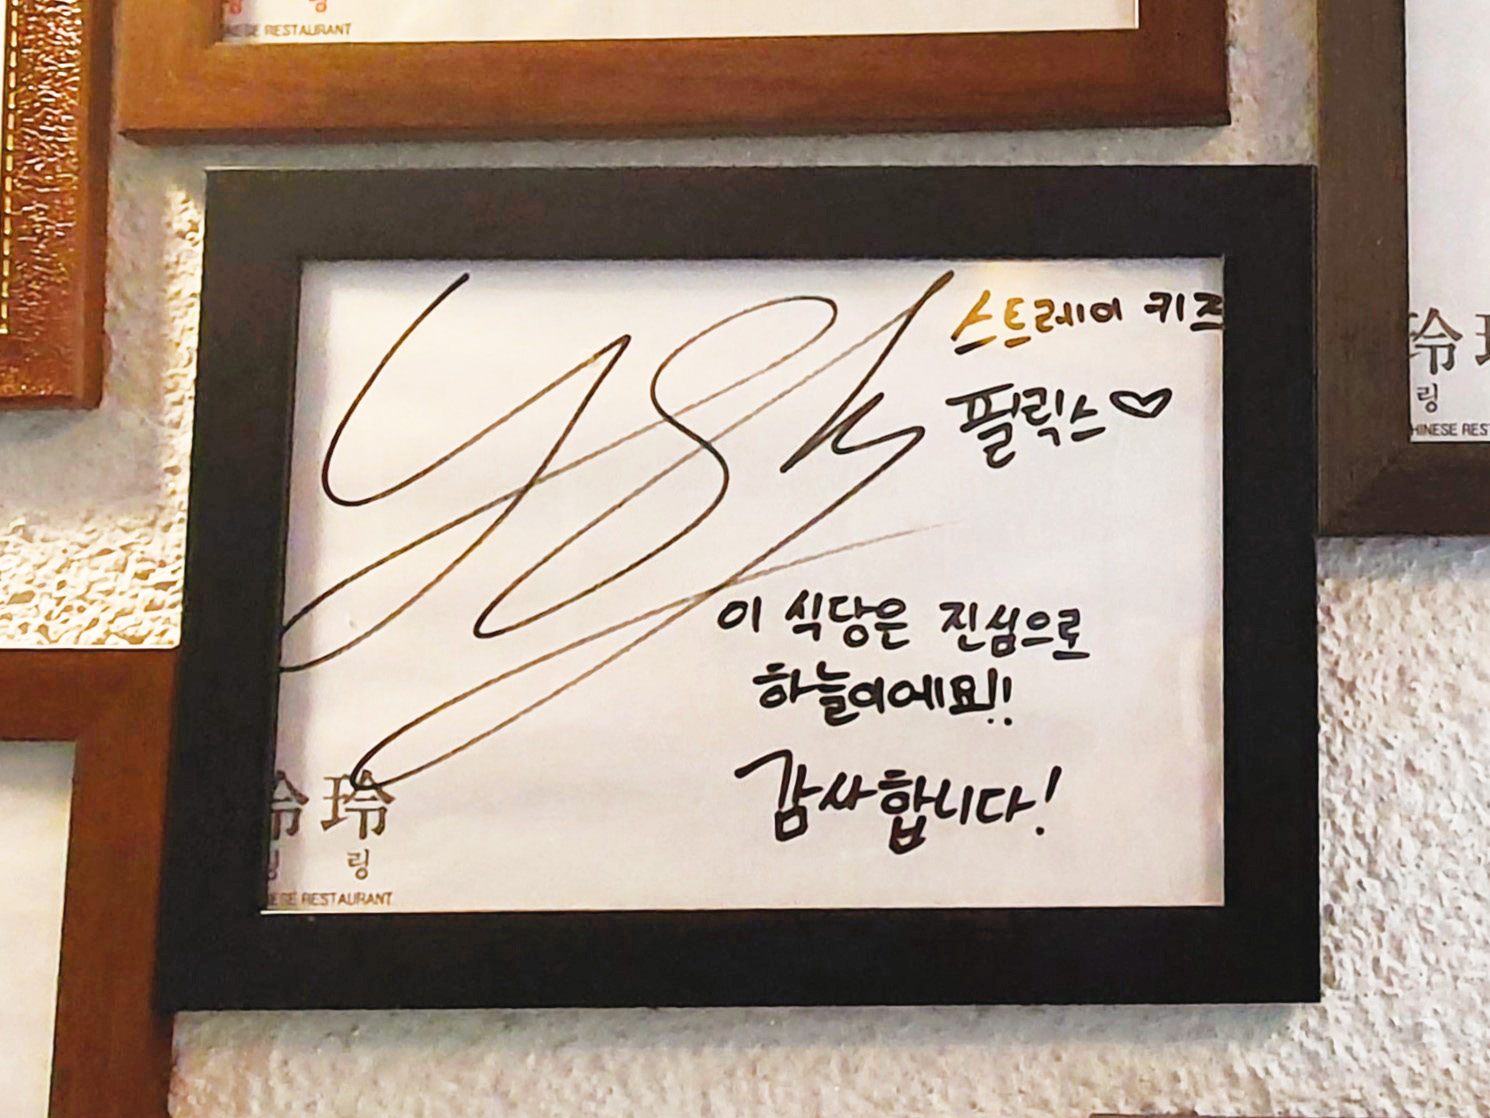 NESE RESTAURANT
스트레이 키즈
필릭스♡
이 식당은 진심으로
하늘이에요!!
감사합니다!
玲玲
링
NESE RESTAURANT
玲
링
HINESE RES